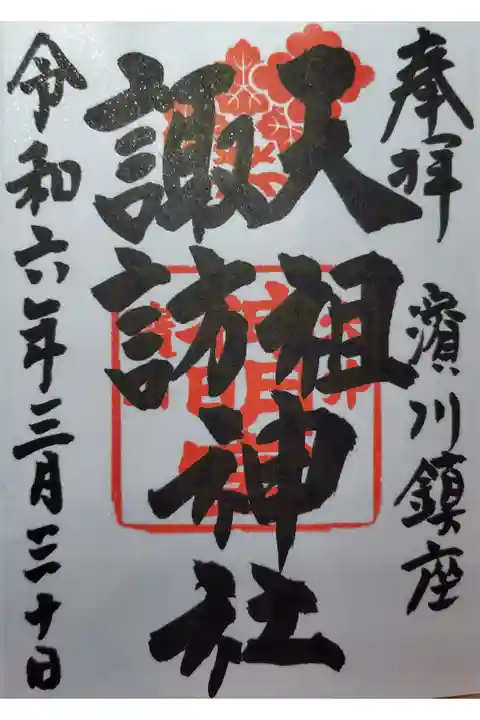 奉拝 濱川鎮座
天祖
諏訪
神社
令和六年三月三十日